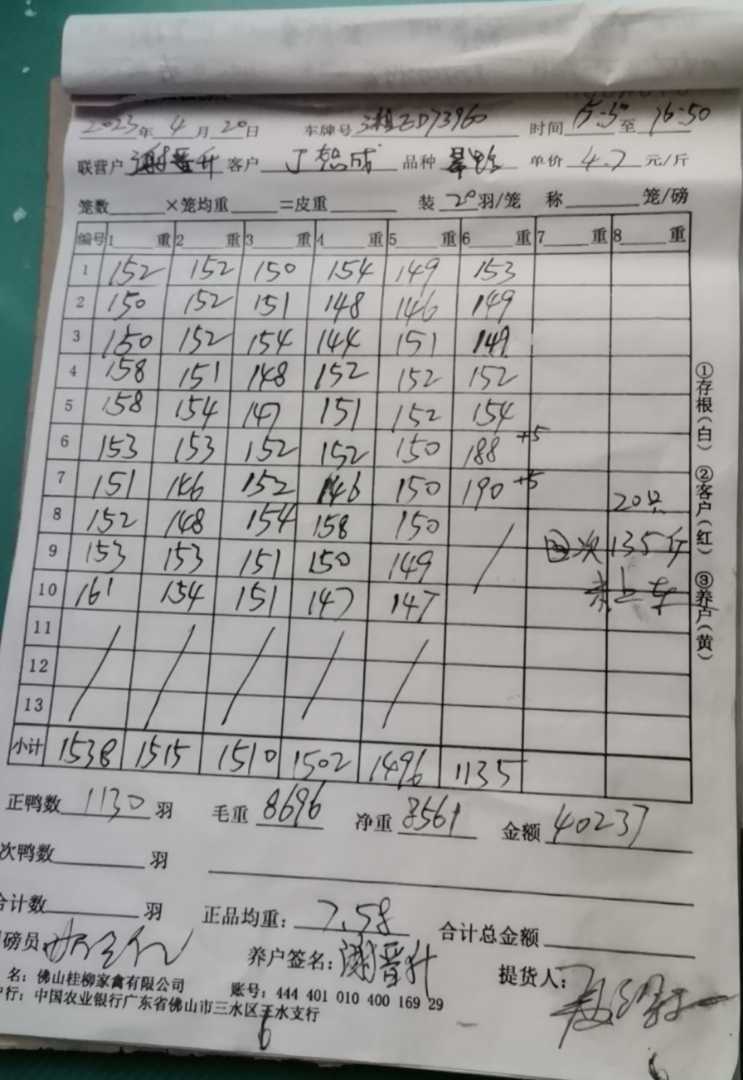 2023年 4 月 20日 车牌号 湘ED73960 时间 15:30 至 16:50
联营户 谢晋升 客户 品种 单价 4.7 元/斤
笼数 ×笼均重 =皮重 装 20羽/笼 称 笼/磅
编号 1 重 2 重 3 重 4 重 5 重 6 重 7 重 8 重
1 152 152 150 154 149 153
2 150 152 151 148 146 149
3 150 152 154 144 151 149
4 158 151 148 152 152 152
5 158 154 147 151 152 154
6 153 153 152 152 150 188 +5
7 151 146 152 146 150 190 +5 20只
8 152 148 154 158 150
9 153 153 151 150 149 135斤
10 161 154 151 147 147
11
12
13
小计 1538 1515 1510 1502 1496 1135
正鸭数 1130 羽 毛重 8696 净重 8561 金额 40237
次鸭数 羽
合计数 羽 正品均重: 7.58 合计总金额
磅员 养户签名: 谢晋升 提货人:
名: 佛山桂柳家禽有限公司 账号: 444 401 010 400 169 29
户行: 中国农业银行广东省佛山市三水区三水支行
①存根(白) ②客户(红) ③养户(黄)
6
6